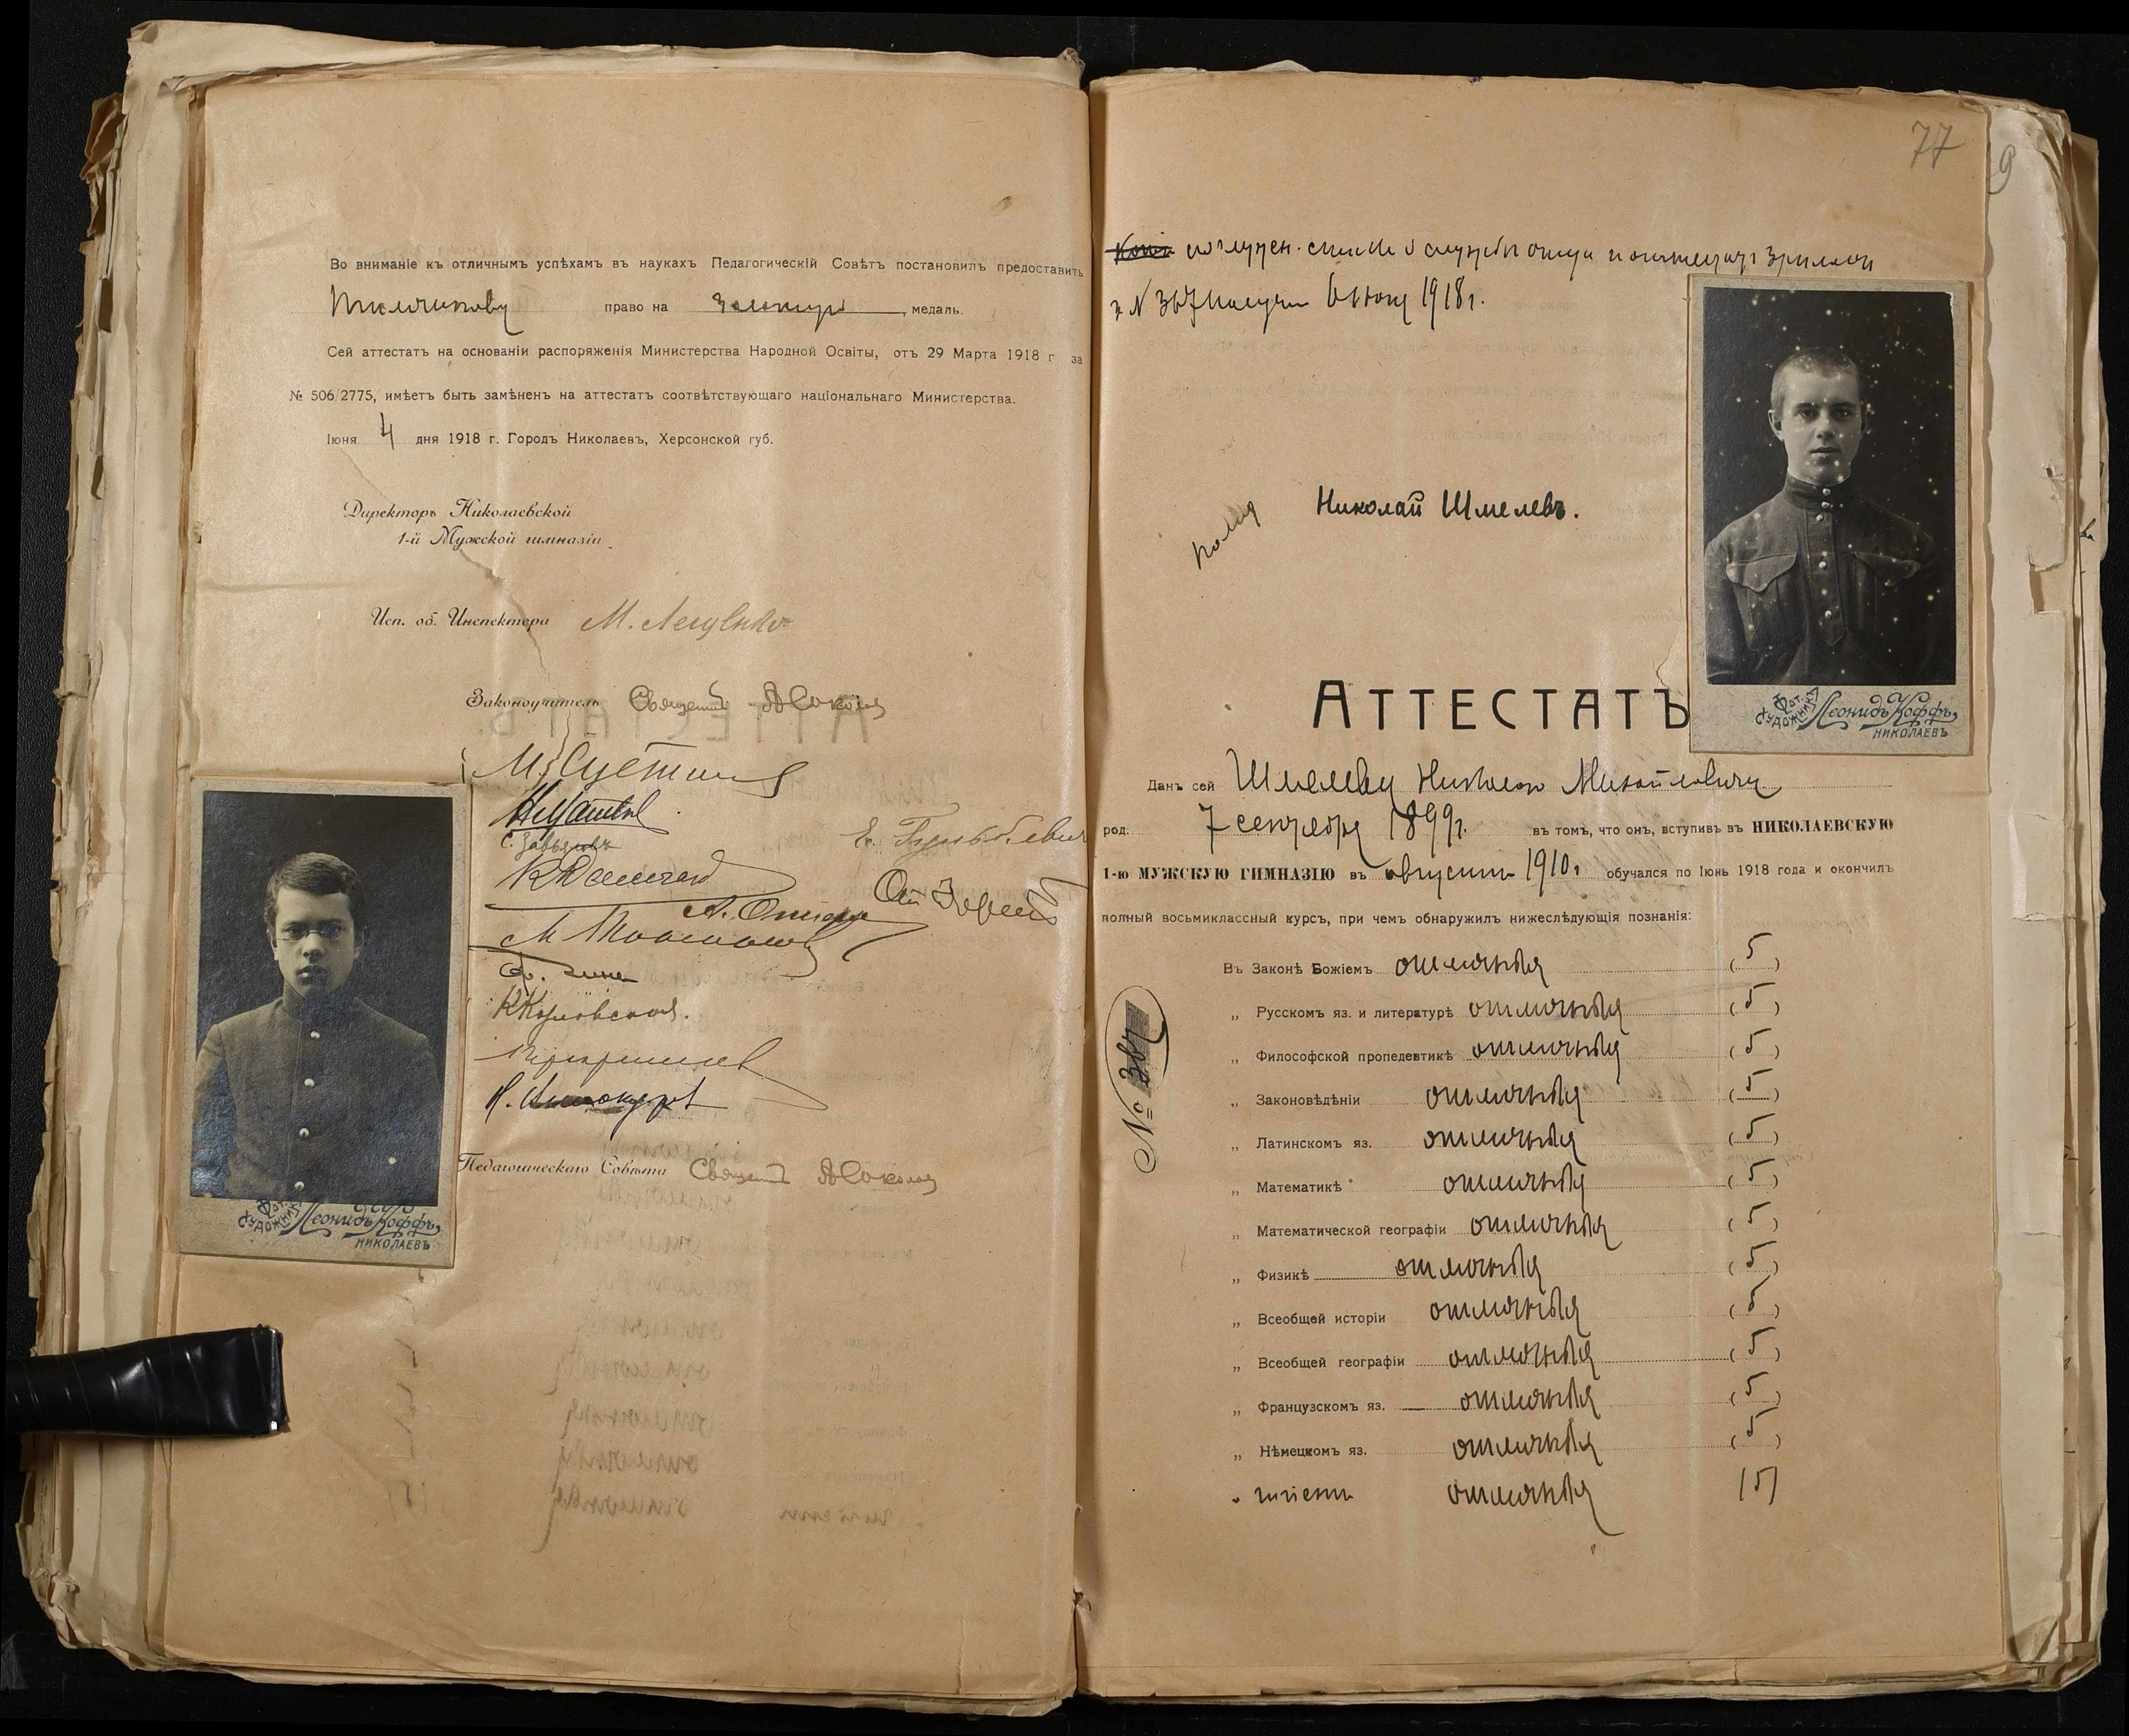 Во вниманіе къ отличнымъ успѣхамъ въ наукахъ Педагогическій Совѣтъ постановилъ предоставить
право на золотую медаль.
Сей аттестатъ на основаніи распоряженія Министерства Народной Освіты, отъ 29 Марта 1918 г за
№ 506/2775, имѣетъ быть замѣненъ на аттестатъ соотвѣтствующаго національнаго Министерства.
Іюня 4 дня 1918 г. Городъ Николаевъ, Херсонской губ.
Директоръ Николаевской
1-й Мужской гимназіи
Исп. об. Инспектора М. Лещенко
Законоучитель Священникъ А Соколов
С. Завьяловъ
Педагогическаго Совѣта Священникъ А Соколов
Фот. Художникъ Леонидъ Коффъ,
НИКОЛАЕВЪ
77
9
Копія получен. службы отца и аттестатъ зрѣлости
з N 367 получи 6 Іюня 1918 г.
Николай Шмелевъ.
Фот. Художникъ Леонидъ Коффъ,
НИКОЛАЕВЪ
АТТЕСТАТЪ
Данъ сей Шмелеву Николаю Михайловичу
род. 7 сентября 1899 г. въ томъ, что онъ, вступивъ въ НИКОЛАЕВСКУЮ
1-ю МУЖСКУЮ ГИМНАЗІЮ въ августѣ 1910 г обучался по Іюнь 1918 года и окончилъ
полный восьмиклассный курсъ, при чемъ обнаружилъ нижеслѣдующія познанія:
Въ Законѣ Божіемъ отличныя (5)
„ Русскомъ яз. и литературѣ отличныя (5)
„ Философской пропедевтикѣ отличныя (5)
„ Законовѣдѣніи отличныя (5)
„ Латинскомъ яз. отличныя (5)
„ Математикѣ отличныя (5)
„ Математической географіи отличныя (5)
„ Физикѣ отличныя (5)
„ Всеобщей исторіи отличныя (5)
„ Всеобщей географіи отличныя (5)
„ Французскомъ яз. отличныя (5)
„ Нѣмецкомъ яз. отличныя (5)
„ гигіенѣ отличныя (5)
№ 367